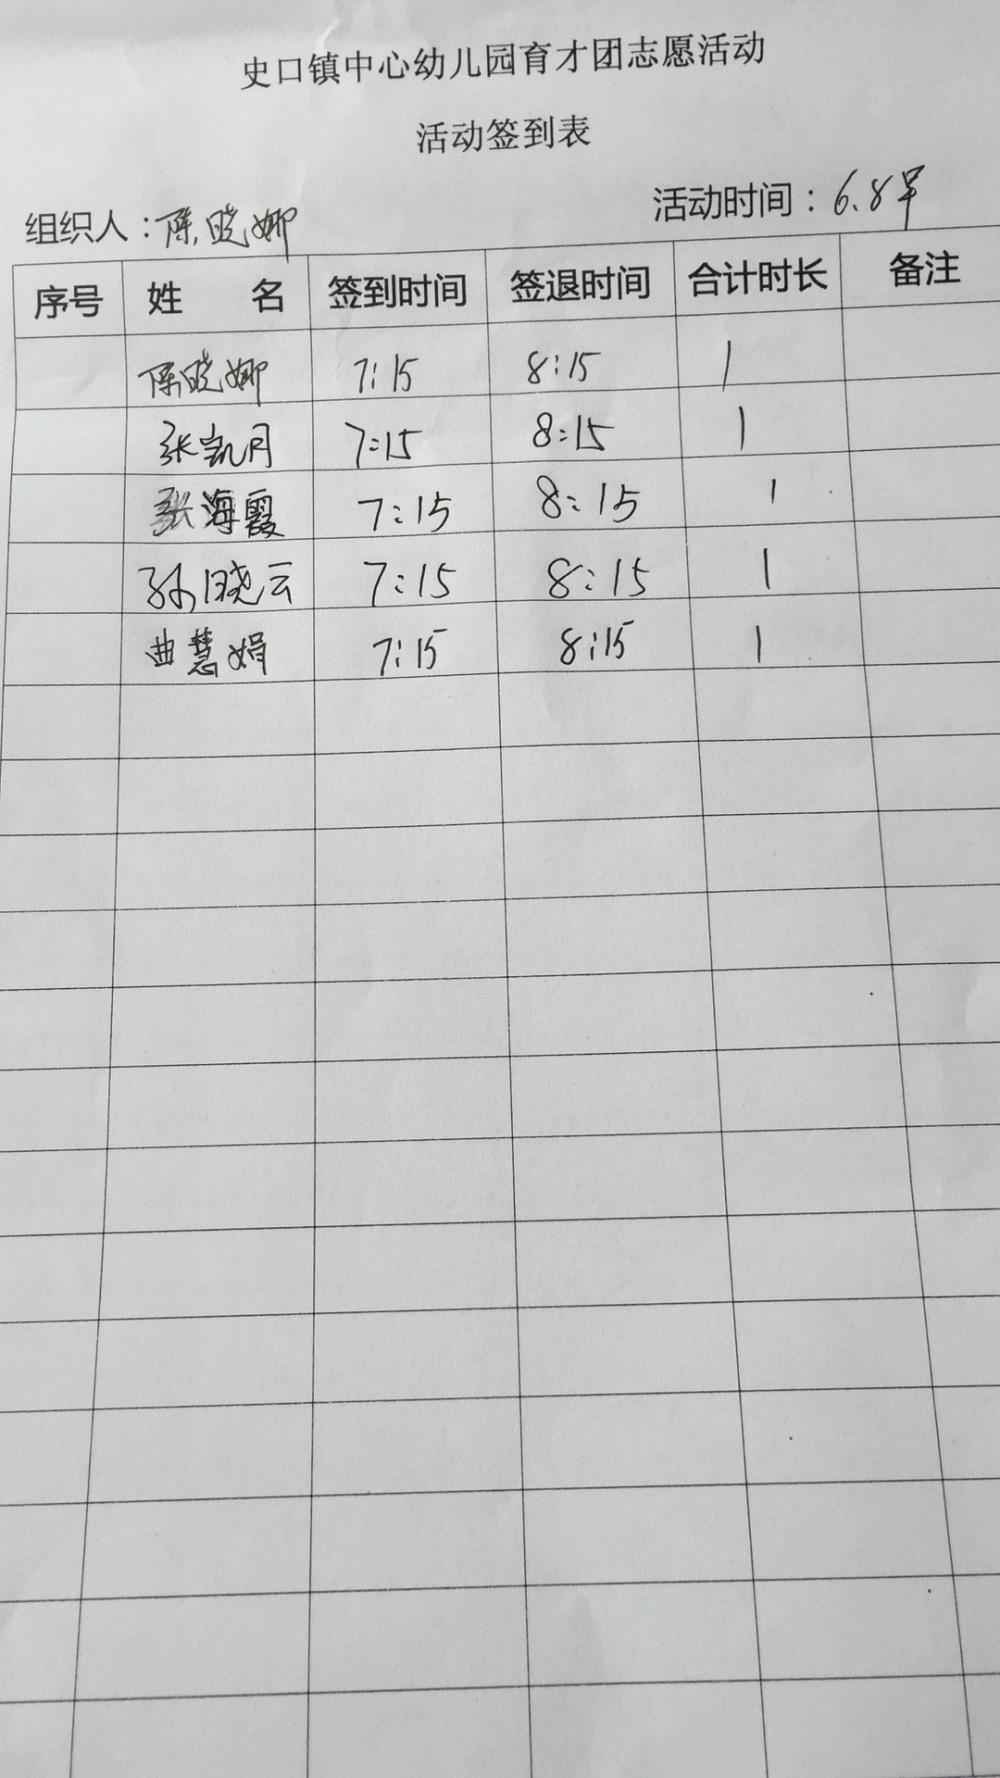 史口镇中心幼儿园育才团志愿活动
活动签到表
组织人：陈晓娜 活动时间：6.8早
序号 姓 名 签到时间 签退时间 合计时长 备注
陈晓娜 7:15 8:15 1
张凯月 7:15 8:15 1
张海霞 7:15 8:15 1
孙晓云 7:15 8:15 1
曲慧娟 7:15 8:15 1